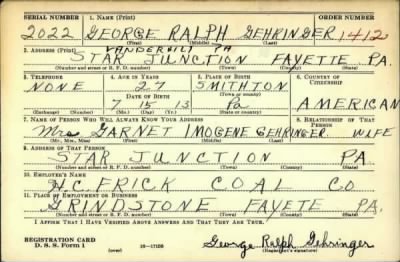 SERIAL NUMBER 1. NAME (Print) ORDER NUMBER
2022 GEORGE RALPH GEHRINGER 1412
(First) (Middle) (Last)
VANDERBILT PA
2. ADDRESS (Print)
STAR JUNCTION FAYETTE PA.
(Number and street or R. F. D. number) (Town) (County) (State)
3. TELEPHONE 4. AGE IN YEARS 5. PLACE OF BIRTH 6. COUNTRY OF CITIZENSHIP
NONE 27 SMITHTON
DATE OF BIRTH (Town or county)
7 15 13 Pa AMERICAN
(Exchange) (Number) (Mo.) (Day) (Yr.) (State or country)
7. NAME OF PERSON WHO WILL ALWAYS KNOW YOUR ADDRESS 8. RELATIONSHIP OF THAT PERSON
Mrs GARNET IMOGENE GEHRINGER WIFE
(Mr., Mrs., Miss) (First) (Middle) (Last)
9. ADDRESS OF THAT PERSON
STAR JUNCTION PA
(Number and street or R. F. D. number) (Town) (County) (State)
10. EMPLOYER'S NAME
H.C. FRICK COAL CO
11. PLACE OF EMPLOYMENT OR BUSINESS
GRINDSTONE FAYETE PA.
(Number and street or R. F. D. number) (Town) (County) (State)
I AFFIRM THAT I HAVE VERIFIED ABOVE ANSWERS AND THAT THEY ARE TRUE.
REGISTRATION CARD
D. S. S. Form 1 (over) 16-17105 George Ralph Gehringer
(Registrant's signature)